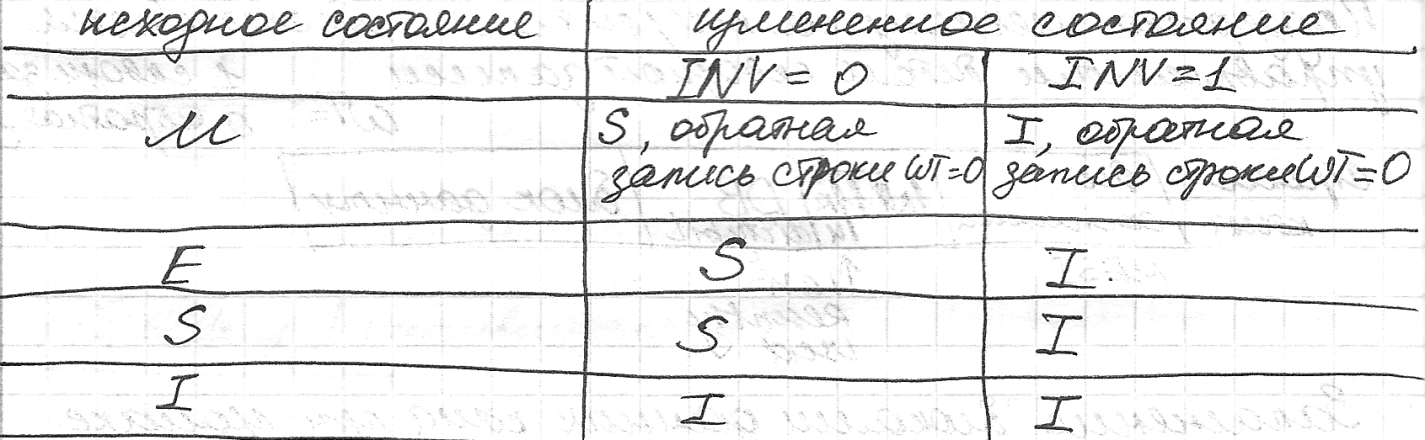 исходное состояние измененное состояние
INV = 0 INV = 1
M S, обратная I, обратная
запись строки WT=0 запись строки WT=0
E S I.
S S I
I I I